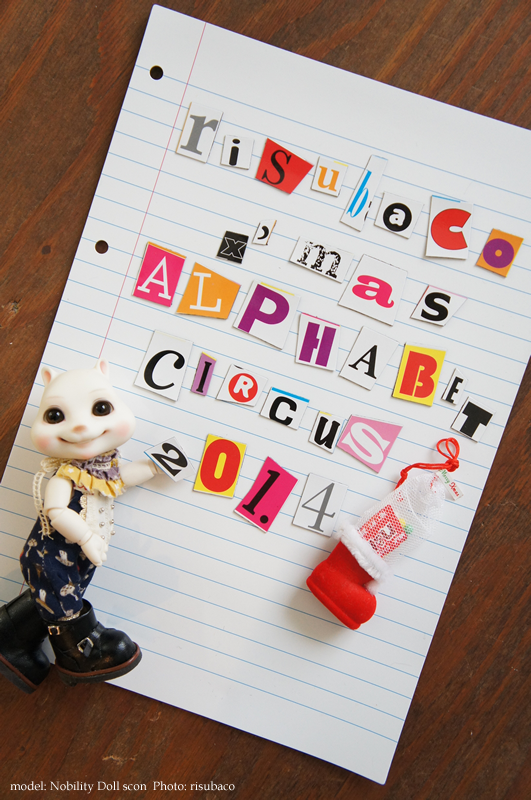 risubaco
x'mas
ALPHABET
CIRCUS
2014
model: Nobility Doll scon Photo: risubaco